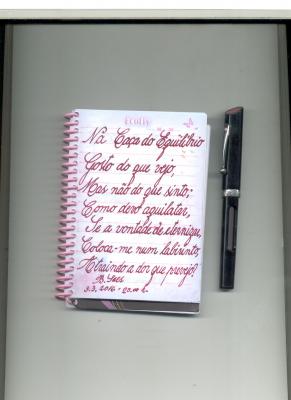 Ecolly
Na Caça do Equilíbrio
Gosto do que vejo,
Mas não do que sinto;
Como devo aquilatar,
Se a vontade de eternizar,
Coloca-me num labirinto,
Atraindo a dor que prevejo?